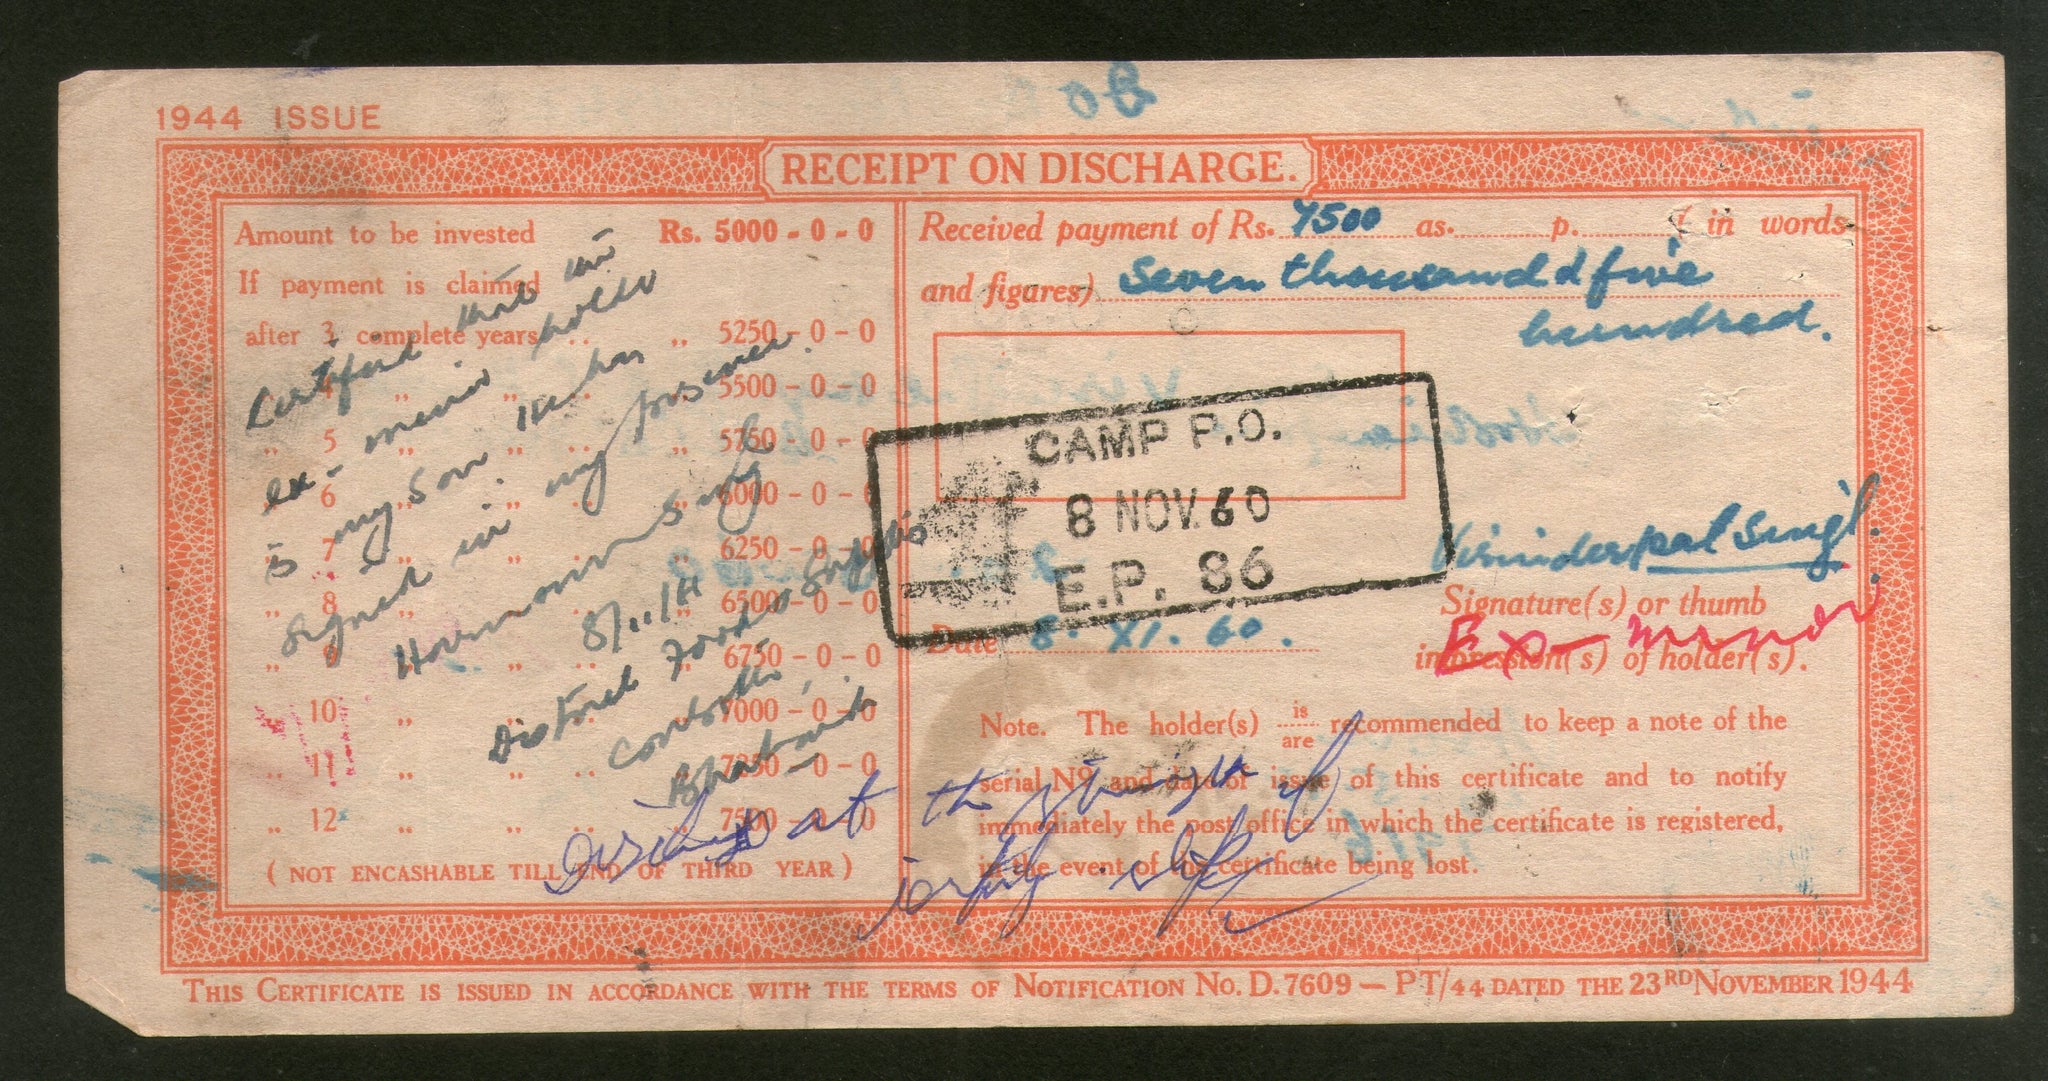 1944 ISSUE
RECEIPT ON DISCHARGE.
Amount to be invested Rs. 5000-0-0
If payment is claimed
after 3 complete years .. „ 5250-0-0
„ 4 „ „ .. „ 5500-0-0
„ 5 „ „ .. „ 5750-0-0
„ 6 „ „ .. „ 6000-0-0
„ 7 „ „ .. „ 6250-0-0
„ 8 „ „ .. „ 6500-0-0
„ 9 „ „ .. „ 6750-0-0
„ 10 „ „ .. „ 7000-0-0
„ 11 „ „ .. „ 7250-0-0
„ 12 „ „ .. „ 7500-0-0
(NOT ENCASHABLE TILL END OF THIRD YEAR)
Certified that the
ex-minor holder
is my son. He has
signed in my presence.
Singh
8/11/
District Food & Supplies
Controller,
Received payment of Rs. 7500 as. p. (in words
and figures) Seven thousand & five
hundred.
CAMP P.O.
8 NOV. 60
E.P. 86
Virinderpal Singh.
Signature(s) or thumb
Ex-minor
impression(s) of holder(s).
Date 8. XI. 60.
Note. The holder(s) is/are recommended to keep a note of the
serial No. and date of issue of this certificate and to notify
immediately the post office in which the certificate is registered,
in the event of the certificate being lost.
at the of
THIS CERTIFICATE IS ISSUED IN ACCORDANCE WITH THE TERMS OF NOTIFICATION NO. D. 7609 – PT/44 DATED THE 23RD NOVEMBER 1944